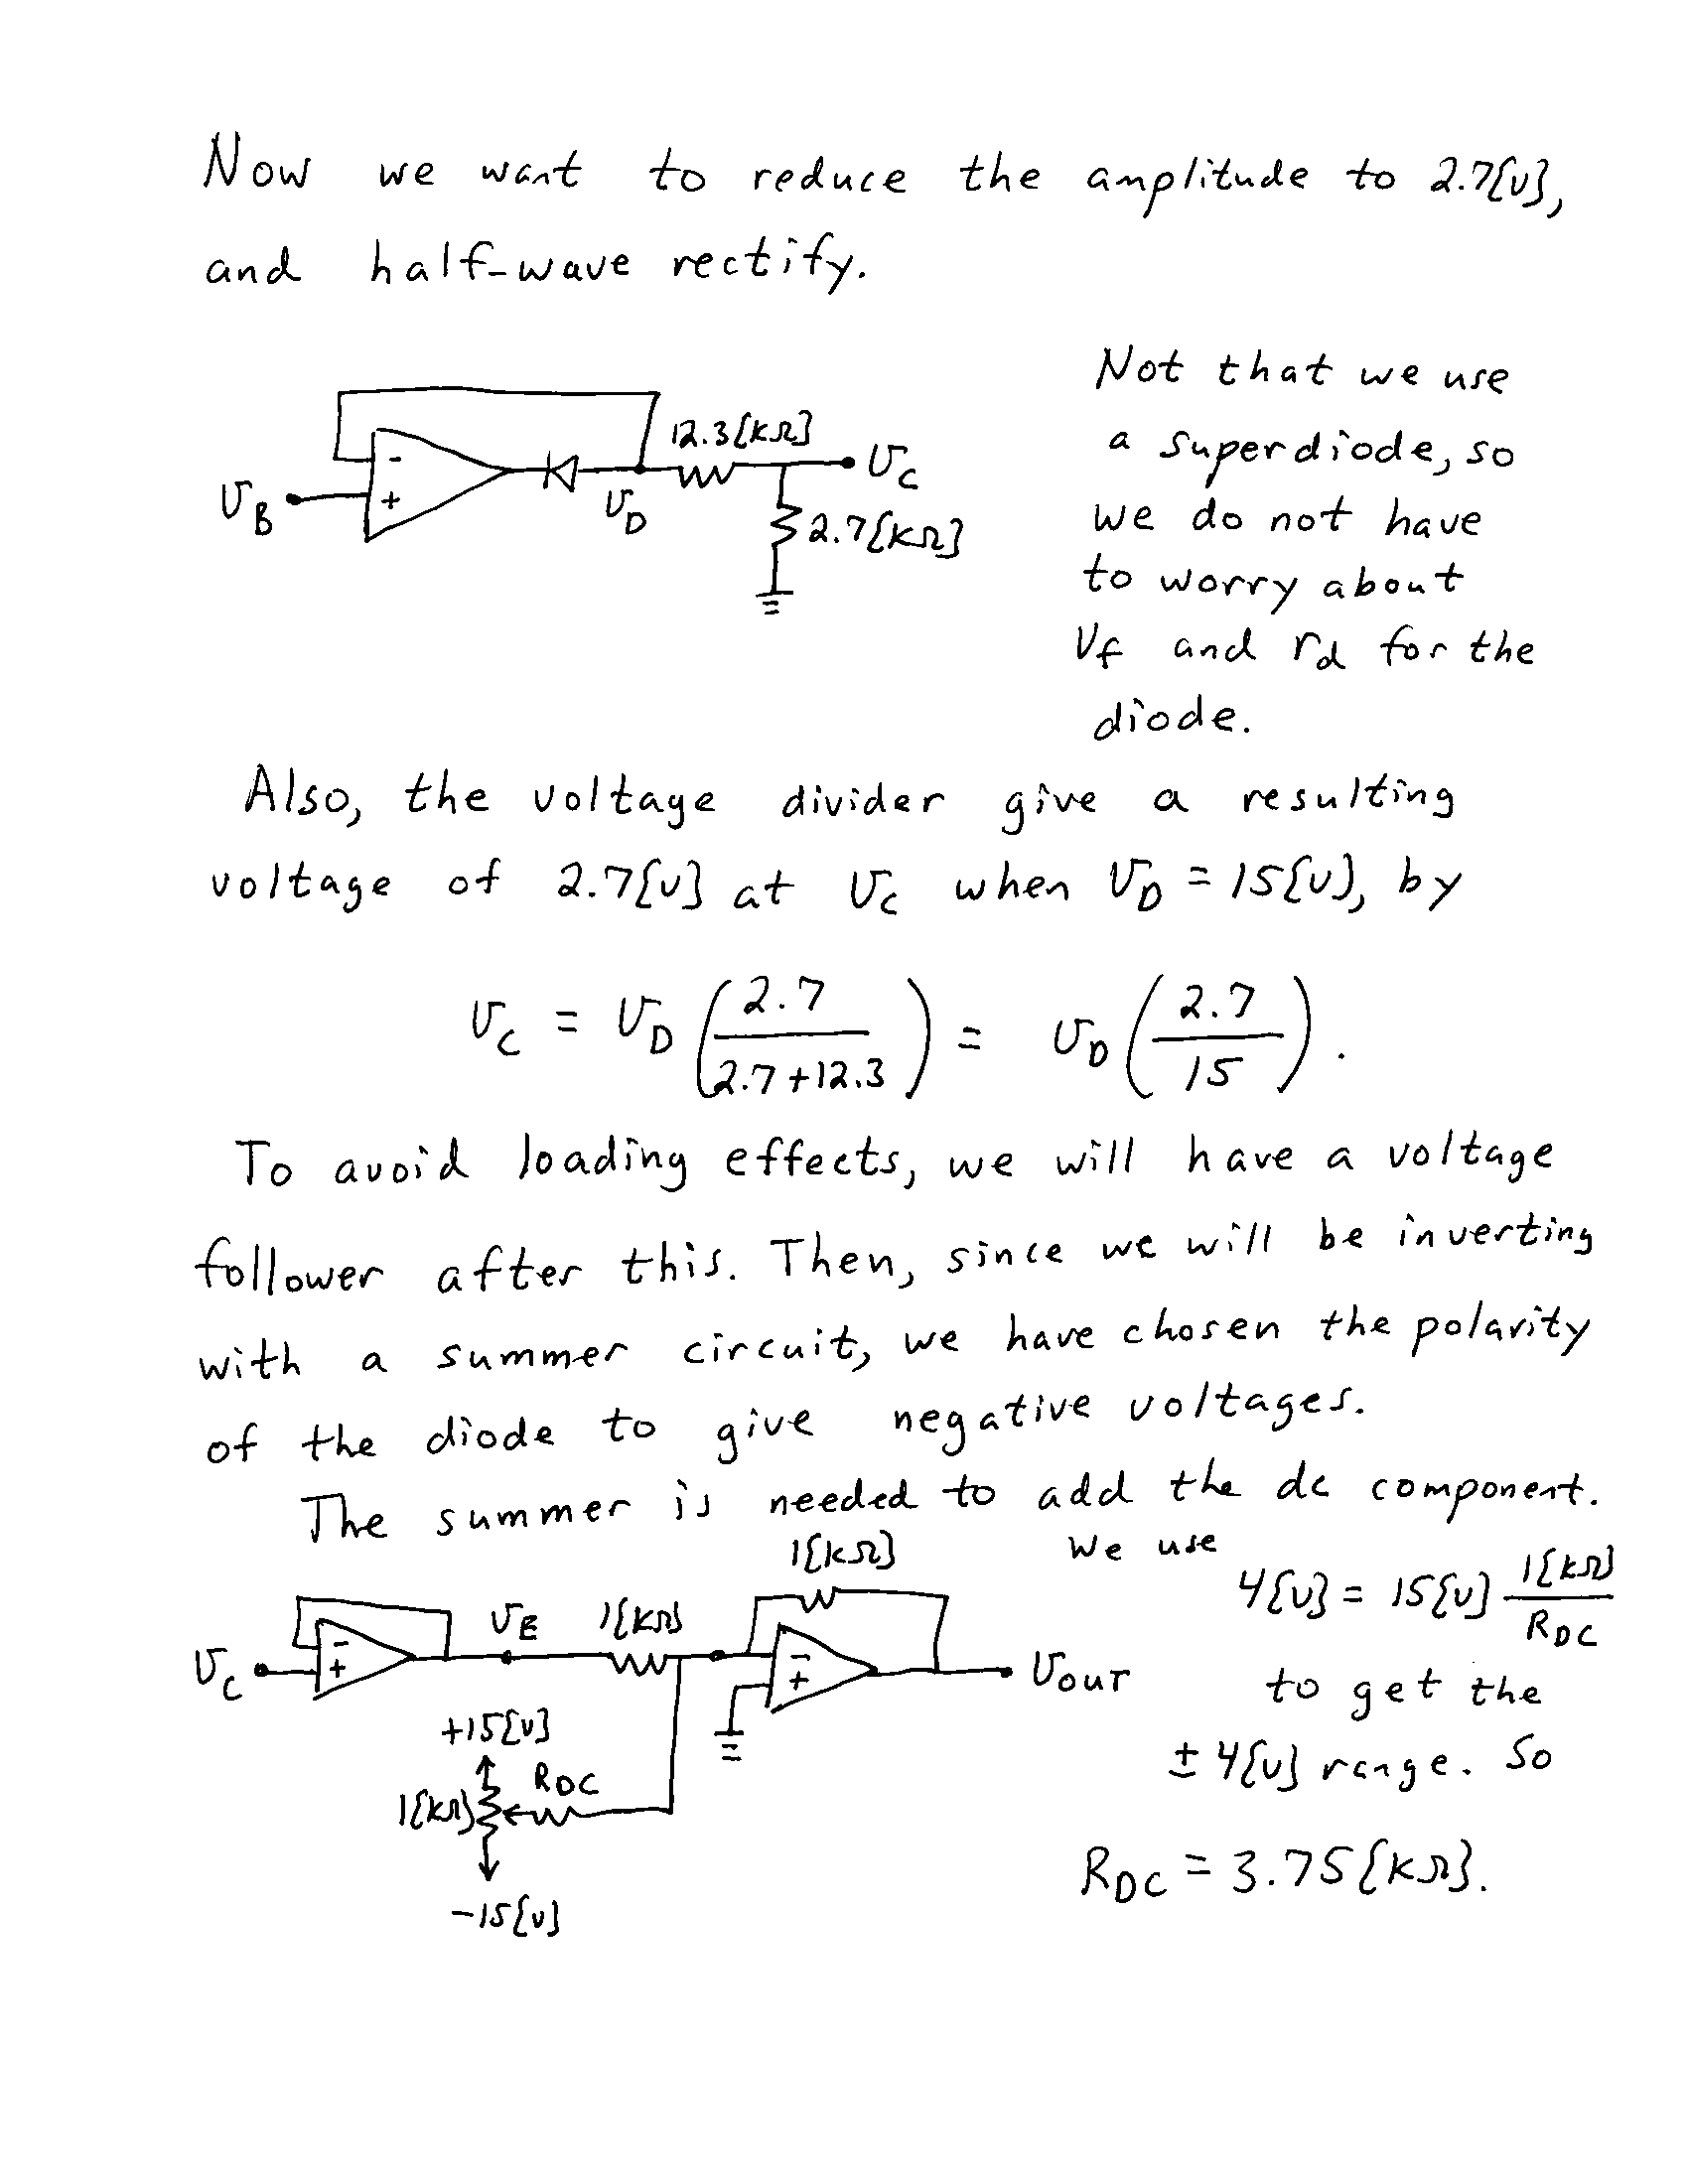 Now we want to reduce the amplitude to 2.7[V],
and half-wave rectify.
Not that we use
a superdiode, so
we do not have
to worry about
Vf and rd for the
diode.
12.3[kΩ]
vC
vB
-
+
vD
2.7[kΩ]
Also, the voltage divider give a resulting
voltage of 2.7[V] at vC when vD = 15[V], by
vC = vD (2.7 / (2.7 + 12.3)) = vD (2.7 / 15).
To avoid loading effects, we will have a voltage
follower after this. Then, since we will be inverting
with a summer circuit, we have chosen the polarity
of the diode to give negative voltages.
The summer is needed to add the dc component.
We use
4[V] = 15[V] 1[kΩ] / RDC
to get the
± 4[V] range. So
RDC = 3.75[kΩ].
1[kΩ]
vE
1[kΩ]
vC
-
+
-
+
vOUT
+15[V]
RDC
1[kΩ]
-15[V]